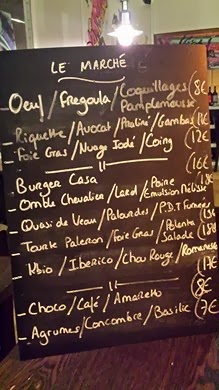 LE MARCHÉ
Oeuf / Fregoula / Coquillages Pamplemousse (8€
- Riquette / Avocat / Pralin / Gambas (11€
- Foie Gras / Nuage Iodé / Coing (12€
Burger Casa (16€
Omble Chevalier / Lard / Poire Emulsion Mélisse
- Quasi de Veau / Palourdes / P.D.T Fumées
- Tourte Paleron / Foie Gras / Polenta Salade
- Kbio / Iberico / Chou Rouge / Romanesco
- Choco / Café / Amaretto (8€
- Agrumes / Concombre / Basilic (7€